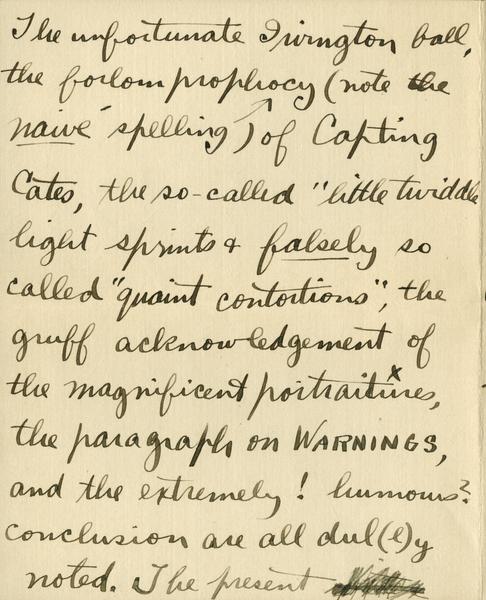 The unfortunate Irvington ball,
the forlorn prophocy (note the
naive spelling) of Capting
Cates, the so-called "little twiddle
light sprints & falsely so
called "quaint contortions", the
gruff acknowledgement of
the magnificent portraitures,
the paragraph on WARNINGS,
and the extremely! humours?
conclusion are all dul(e)y
noted. The present